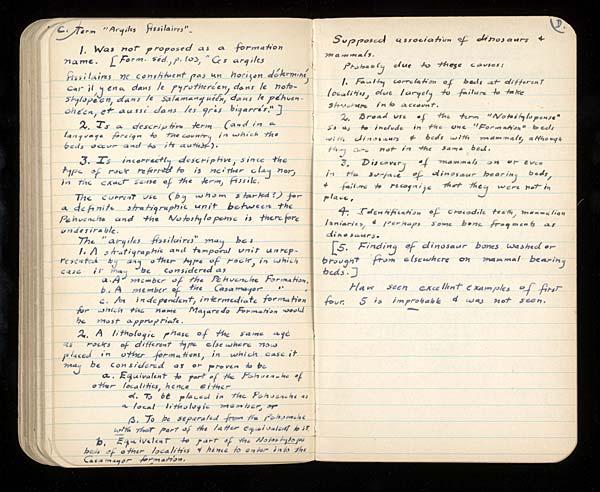 C. Term "Argiles fissilaires".
1. Was not proposed as a formation
name. [Form. sed., p. 103, "Ces argiles
fissilaires ne constituent pas un horizon déterminé,
car il y en a dans le pyrothéréen, dans le noto-
stylopéen, dans le salamanquéen, dans le pehuen-
chéen, et aussi dans les grès bigarrés."]
2. Is a descriptive term (and in a
language foreign to the country, in which the
beds occur and to its author).
3. Is incorrectly descriptive, since the
type of rock referred to is neither clay nor,
in the exact sense of the term, fissile.
The current use (by whom started?) for
a definite stratigraphic unit between the
Pehuenche and the Notostylopense is therefore
undesirable.
The "argiles fissilaires" may be:
1. A stratigraphic and temporal unit unrep-
resented by any other type of rock, in which
case it may be considered as
a. A member of the Pehuenche Formation.
b. A member of the Casamayor "
c. An independent, intermediate formation
for which the name Mazaredo Formation would
be most appropriate.
2. A lithologic phase of the same age
as rocks of different type elsewhere now
placed in other formations, in which case it
may be considered as or proven to be
a. Equivalent to part of the Pehuenche of
other localities, hence either
α. To be placed in the Pehuenche as
a local lithologic member, or
β. To be separated from the Pehuenche
with that part of the latter equivalent to it.
b. Equivalent to part of the Notostylops
beds of other localities & hence to enter into the
Casamayor formation.
D.
Supposed association of dinosaurs &
mammals.
Probably due to these causes:
1. Faulty correlation of beds at different
localities, due largely to failure to take
structure into account.
2. Broad use of the term "Notostylopense"
so as to include in the one "Formation" beds
with dinosaurs & beds with mammals, although
they are not in the same bed.
3. Discovery of mammals on or even
in the surface of dinosaur bearing beds,
& failure to recognize that they were not in
place.
4. Identification of crocodile teeth, mammalian
laniaries, & perhaps some bone fragments as
dinosaurs.
[5. Finding of dinosaur bones washed or
brought from elsewhere on mammal bearing
beds.]
Have seen excellent examples of first
four. 5 is improbable & was not seen.